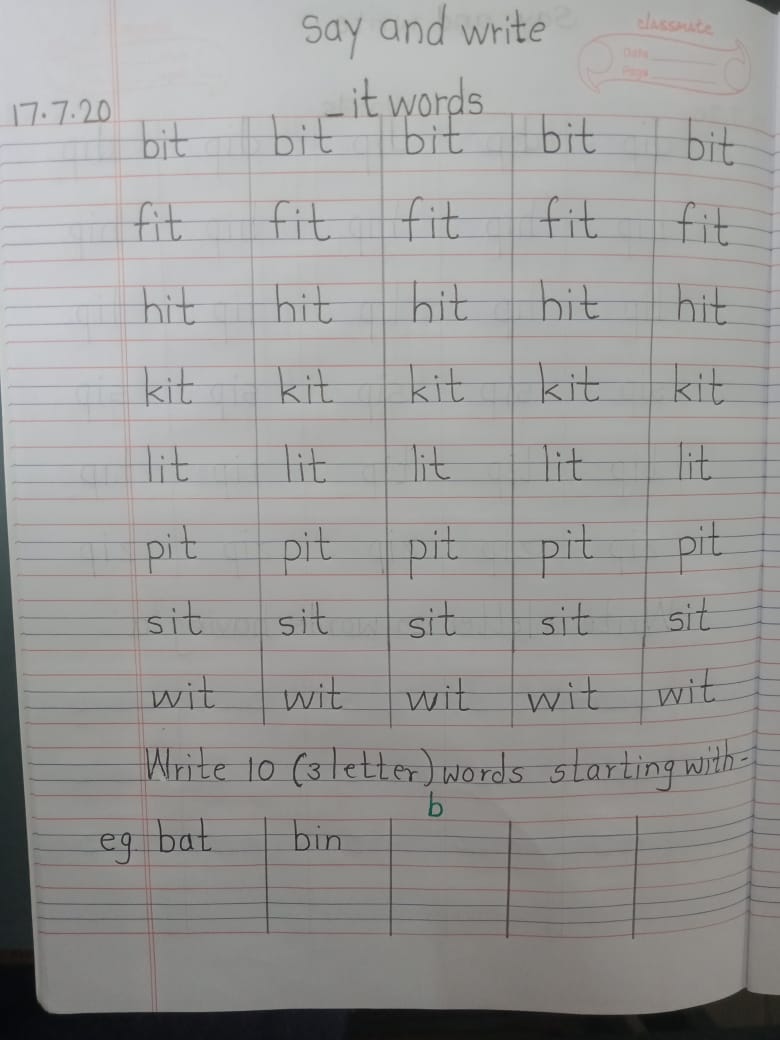 Say and write
classmate
Date
Page
17.7.20
-it words
bit bit bit bit bit
fit fit fit fit fit
hit hit hit hit hit
kit kit kit kit kit
lit lit lit lit lit
pit pit pit pit pit
sit sit sit sit sit
wit wit wit wit wit
Write 10 (3 letter) words starting with-
b
eg bat bin